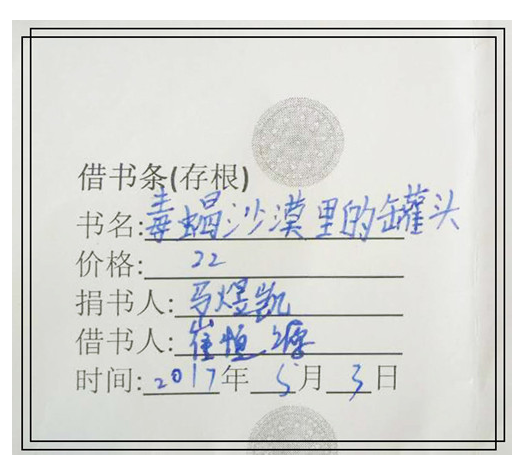 借书条(存根)
书名:毒蝎沙漠里的罐头
价格: 22
捐书人: 马煜凯
借书人: 崔恒
时间: 2017年 5月 3日